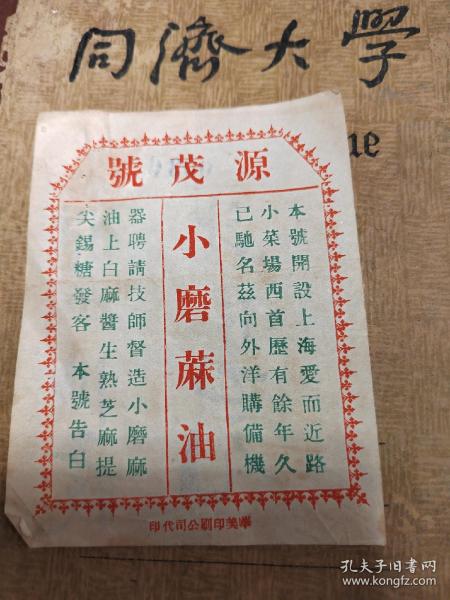 同濟大學
ue
源茂號
本號開設上海愛而近路
小菜場西首歷有餘年久
已馳名茲向外洋購備機
小磨蔴油
器聘請技師督造小磨麻
油上白麻醬生熟芝麻提
尖錫糖發客 本號告白
華美印刷公司代印
孔夫子旧书网
www.kongfz.com